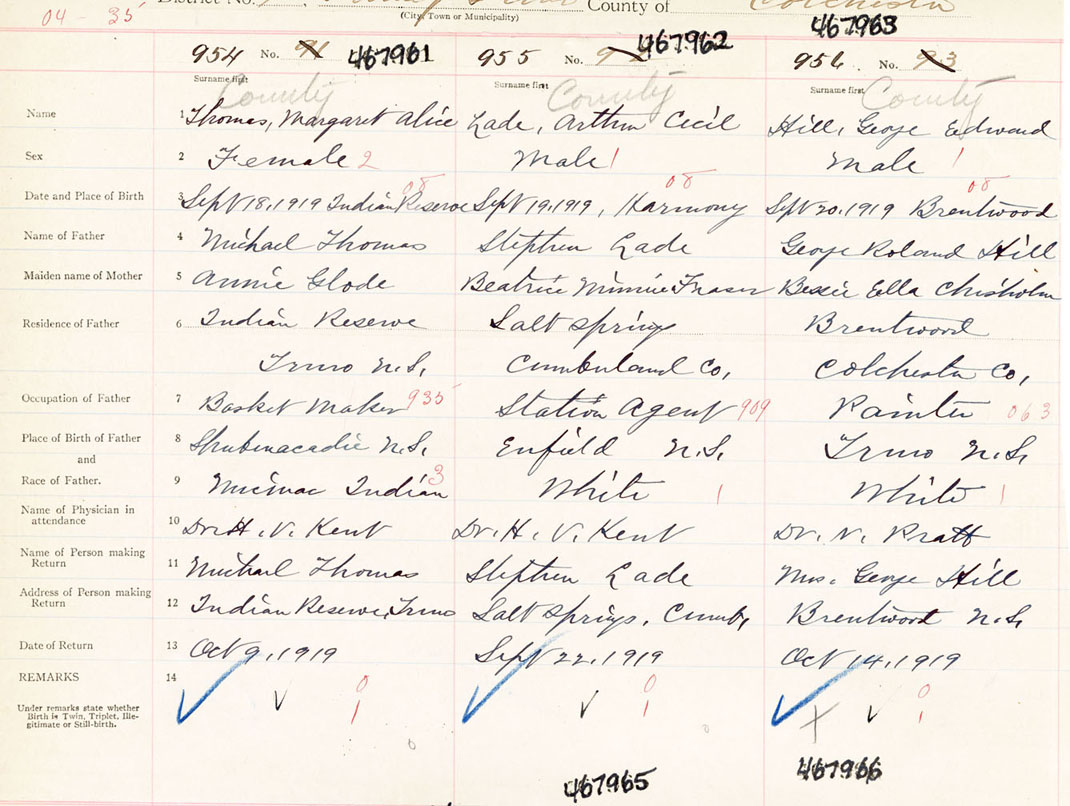 District No. County of Colchester
04 - 35
(City, Town or Municipality)
467963
954 No. 91 467961 955 No. 467962 956 No. 93
Surname first Surname first Surname first
County County County
Name 1 Thomas, Margaret Alice Lade, Arthur Cecil Hill, George Edward
Sex 2 Female 2 Male 1 Male 1
08 08 08
Date and Place of Birth 3 Sept 18, 1919 Indian Reserve Sept 19, 1919, Harmony Sept 20, 1919 Brentwood
Name of Father 4 Michael Thomas Stephen Lade George Roland Hill
Maiden name of Mother 5 Annie Glode Beatrice Minnie Fraser Bessie Ella Chisholm
Residence of Father 6 Indian Reserve Salt Springs Brentwood
Truro N.S. Cumberland Co, Colchester Co,
Occupation of Father 7 Basket Maker 935 Station Agent 909 Painter 063
Place of Birth of Father 8 Shubenacadie N.S. Enfield N.S. Truro N.S.
and
Race of Father. 9 Micmac Indian 3 White 1 White 1
Name of Physician in
attendance 10 Dr. H. V. Kent Dr. H. V. Kent Dr. V. Pratt
Name of Person making
Return 11 Michael Thomas Stephen Lade Mrs. George Hill
Address of Person making
Return 12 Indian Reserve, Truro Salt Springs, Cumb, Brentwood N.S.
Date of Return 13 Oct 9, 1919 Sept 22, 1919 Oct 14, 1919
REMARKS 14
0 0 0
Under remarks state whether
Birth is Twin, Triplet, Ille-
gitimate or Still-birth.
1 1 1
467965 467966